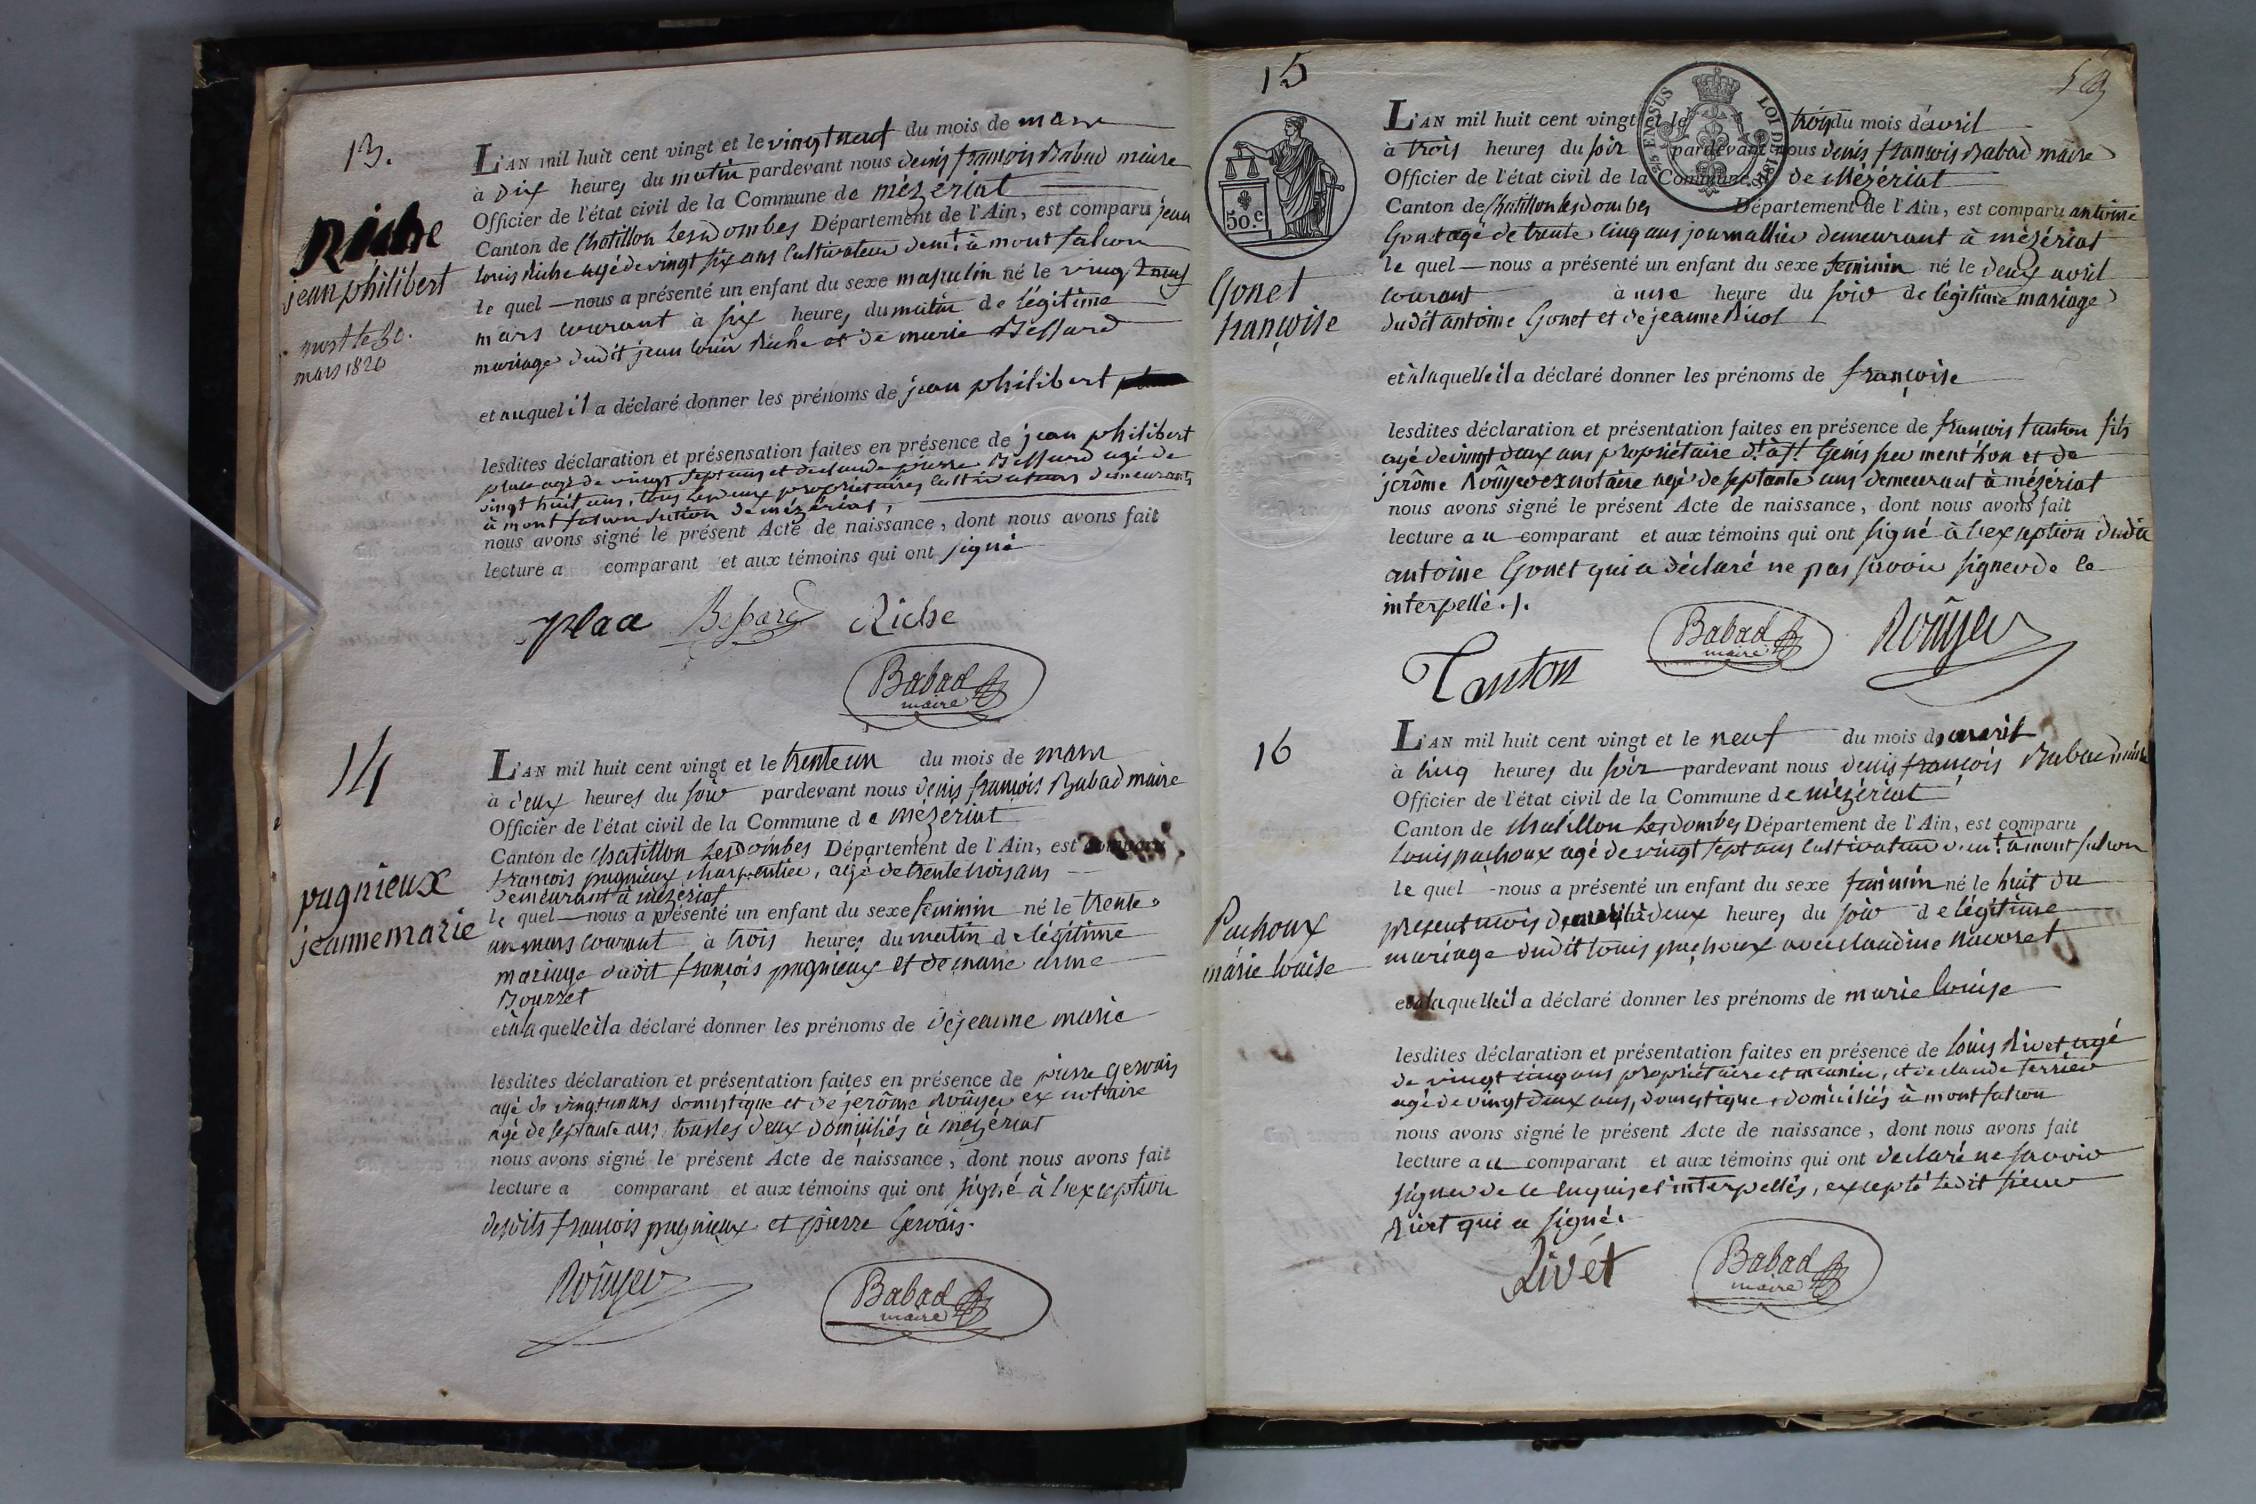 13.
Riche
jean philibert
mort le 30.
mars 1820
L'AN mil huit cent vingt et le vingt neuf du mois de mars
à dix heures du matin pardevant nous denis françois Babad maire
Officier de l'état civil de la Commune de mézériat
Canton de Chatillon Les dombes Département de l'Ain, est comparu jean
louis Riche agé de vingt six ans Cultivateur demt. à montfalcon
le quel nous a présenté un enfant du sexe masculin né le vingt neuf
mars courant à six heures du matin de légitime
mariage dudit jean louis Riche et de marie Bessard
et auquel il a déclaré donner les prénoms de jean philibert
lesdites déclaration et présensation faites en présence de jean philibert
place agé de vingt sept ans et de claude pierre Bessard agé de
vingt huit ans, tous les deux propriétaires Cultivateurs demeurants
à montfalcon section de mézériat,
nous avons signé le présent Acte de naissance, dont nous avons fait
lecture a comparant et aux témoins qui ont signé
place Bessard Riche
Babad
maire
14
pagnieux
jeanne marie
L'AN mil huit cent vingt et le trente un du mois de mars
à deux heures du soir pardevant nous denis françois Babad maire
Officier de l'état civil de la Commune de mézériat
Canton de Chatillon Les dombes Département de l'Ain, est comparu
françois pagnieux charpentier, agé de trente trois ans
demeurant à mézériat
le quel nous a présenté un enfant du sexe feminin né le trente
un mars courant à trois heures du matin de légitime
mariage dudit françois pagnieux et de marie anne
Bourret
et à laquelle il a déclaré donner les prénoms de de jeanne marie
lesdites déclaration et présentation faites en présence de pierre gervais
agé de vingt un ans domestique et de jerôme Roüyer ex notaire
agé de septante ans tous les deux domiciliés à mézériat
nous avons signé le présent Acte de naissance, dont nous avons fait
lecture a comparant et aux témoins qui ont signé à l'exception
desdits françois pagnieux et pierre Gervais.
Roüyer
Babad
maire
15
59
50.c
25 EN SUS LOI DE 1816
Gonet
françoise
L'AN mil huit cent vingt et le trois du mois d'avril
à trois heures du soir pardevant nous denis françois Babad maire
Officier de l'état civil de la Commune de Mézériat
Canton de Chatillon les dombes Département de l'Ain, est comparu antoine
Gonet agé de trente cinq ans journallier demeurant à mézériat
le quel nous a présenté un enfant du sexe feminin né le deux avril
courant à une heure du soir de légitime mariage
dudit antoine Gonet et de jeanne Nicot
et à laquelle il a déclaré donner les prénoms de françoise
lesdites déclaration et présentation faites en présence de françois tanton fils
agé de vingt deux ans propriétaire dt. à st. Genis sur menthon et de
jerôme Roüyer ex notaire agé de septante ans demeurant à mézériat
nous avons signé le présent Acte de naissance, dont nous avons fait
lecture au comparant et aux témoins qui ont signé à l'exception dudit
antoine Gonet qui a déclaré ne pas savoir signer de ce
interpellé ./.
Tanton
Babad
maire
Roüyer
16
Pachoux
marie louise
L'AN mil huit cent vingt et le neuf du mois d'avril
à cinq heures du soir pardevant nous denis françois Babad maire
Officier de l'état civil de la Commune de mézériat
Canton de Chatillon Les dombes Département de l'Ain, est comparu
Louis pachoux agé de vingt sept ans Cultivateur demt. à montfalcon
le quel nous a présenté un enfant du sexe feminin né le huit du
present mois d'avril à deux heures du soir de légitime
mariage dudit louis pachoux avec claudine
et à laquelle il a déclaré donner les prénoms de marie louise
lesdites déclaration et présentation faites en présence de louis Rivet agé
de vingt cinq ans propriétaire et meunier, et de claude terrier
agé de vingt deux ans, domestique, domiciliés à montfalcon
nous avons signé le présent Acte de naissance, dont nous avons fait
lecture au comparant et aux témoins qui ont declaré ne savoir
signer de ce enquis et interpellés, excepté ledit sieur
Rivet qui a signé.
Rivet
Babad
maire